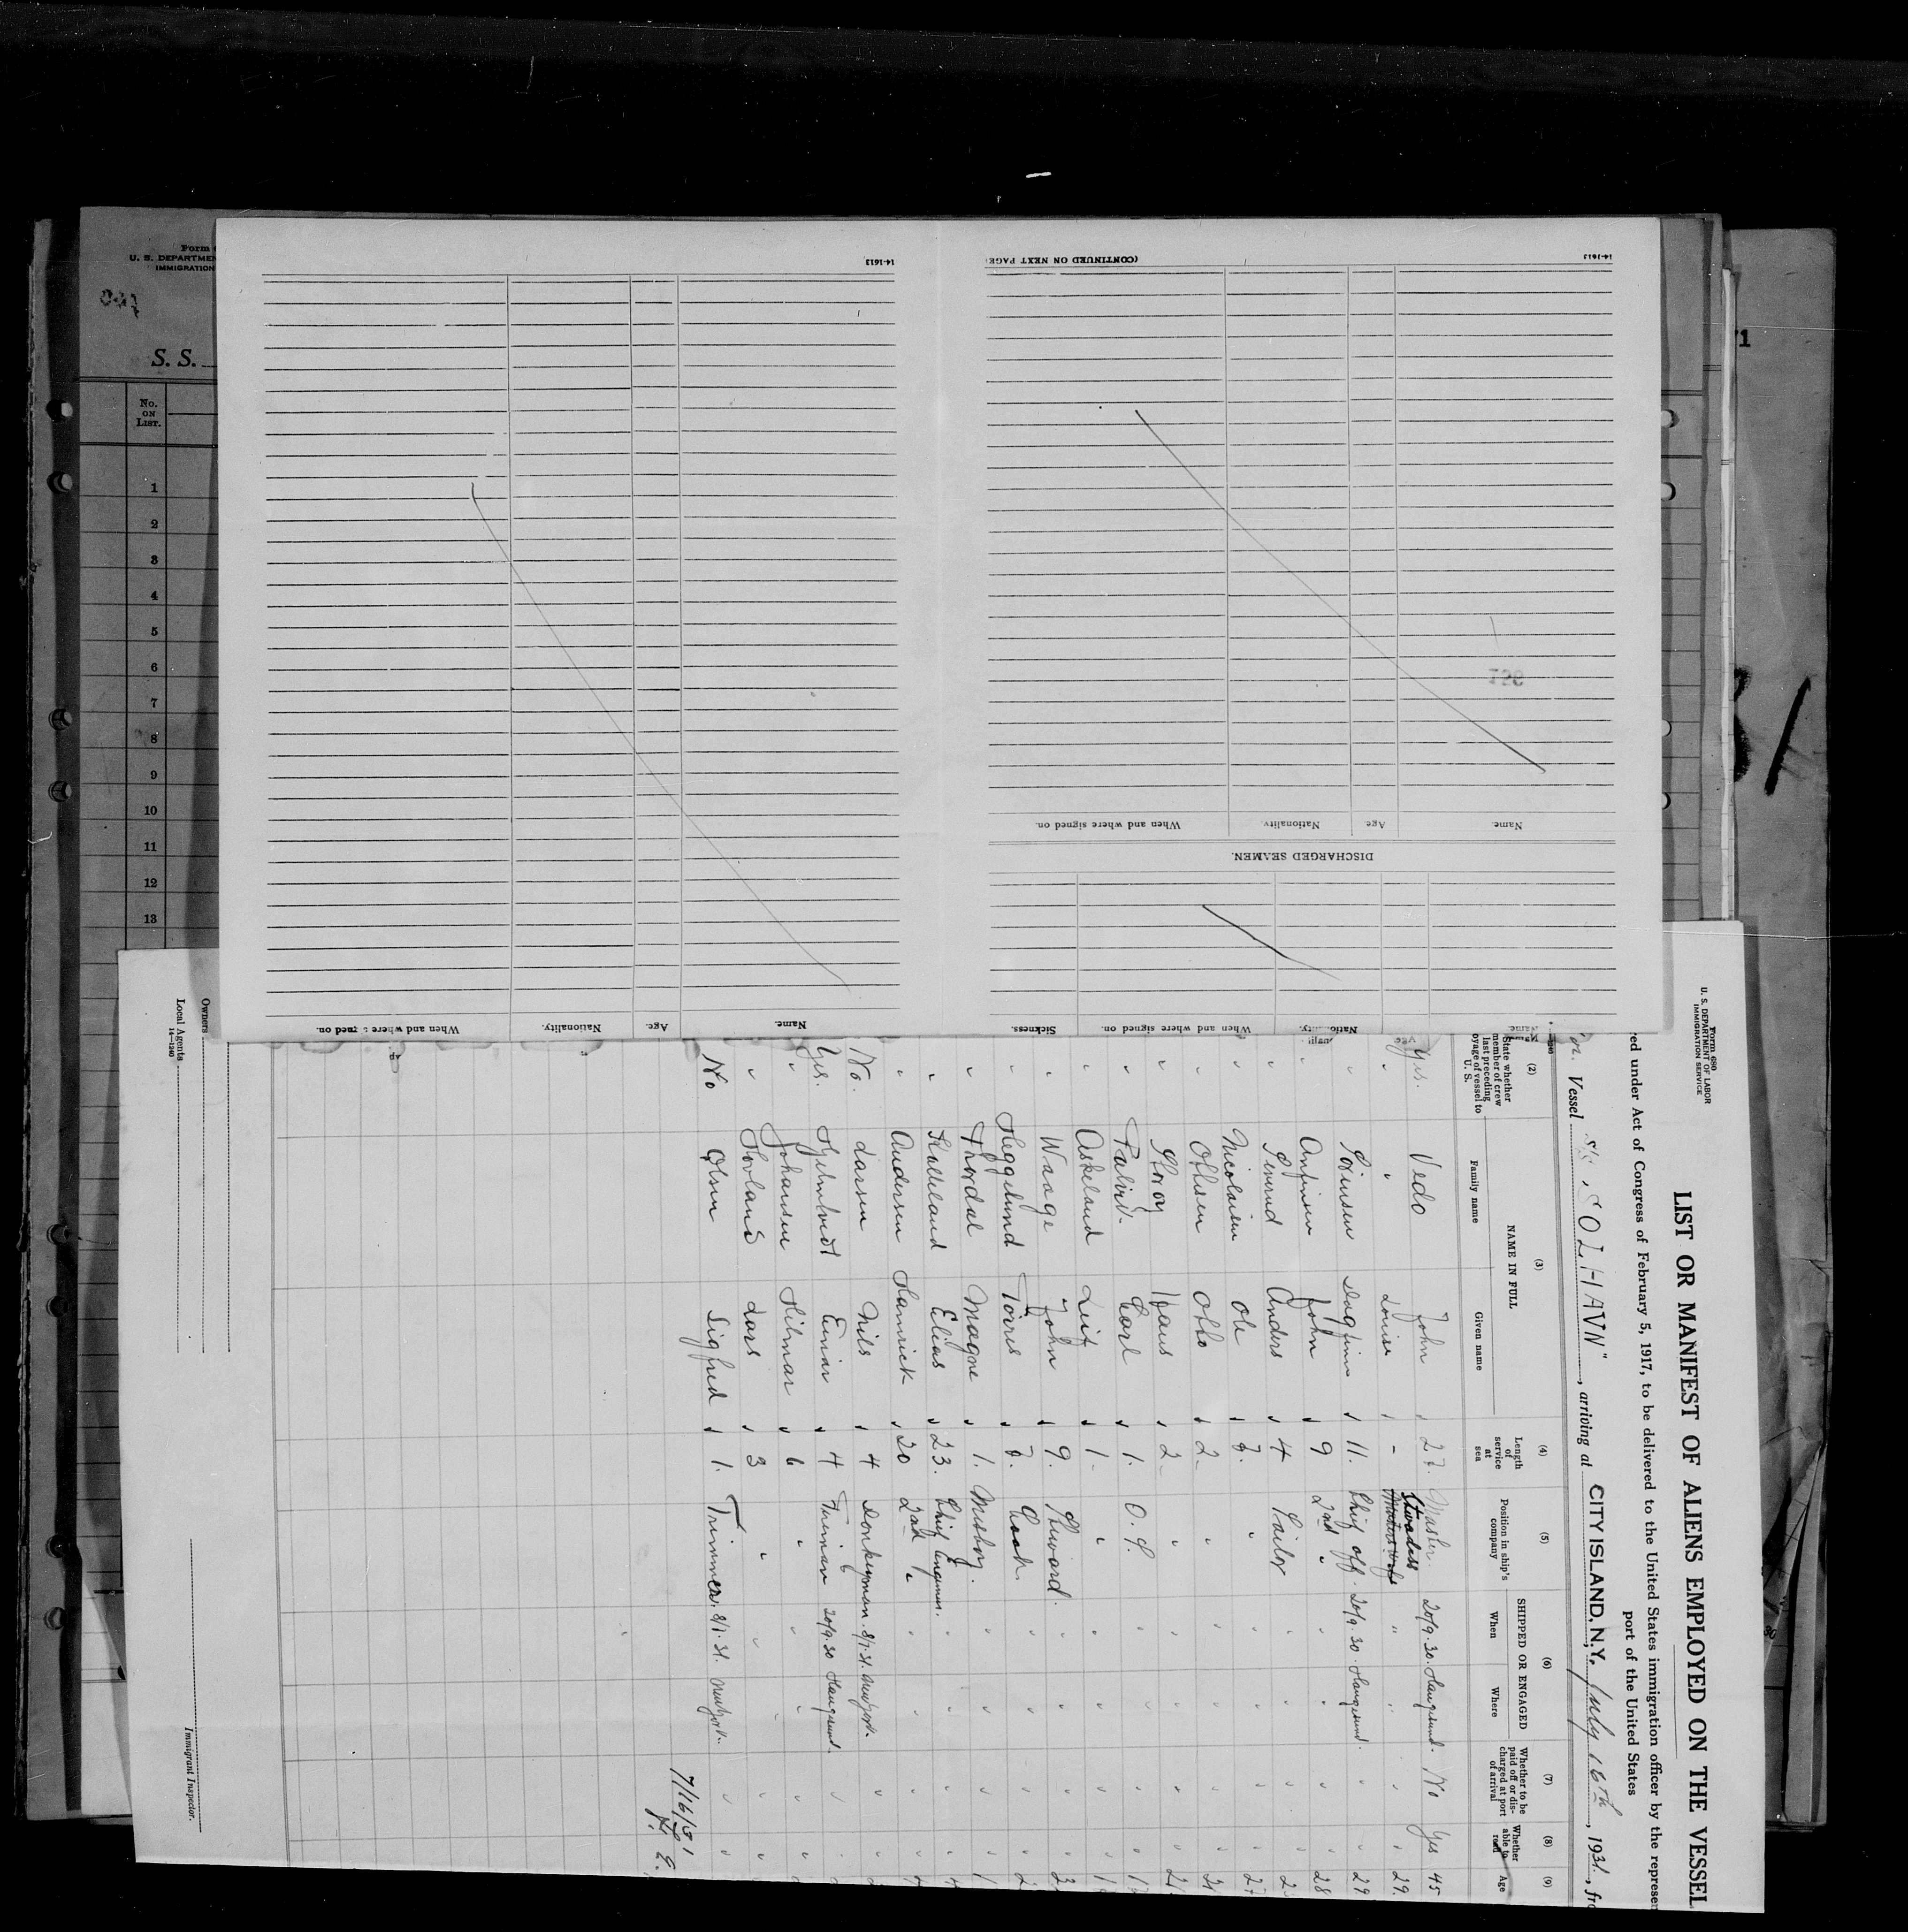 Form 680
U. S. DEPARTMENT OF LABOR
IMMIGRATION SERVICE
LIST OR MANIFEST OF ALIENS EMPLOYED ON THE VESSEL
red under Act of Congress of February 5, 1917, to be delivered to the United States immigration officer by the represen
port of the United States
Vessel S/S "SOLHAVN", arriving at CITY ISLAND, N.Y. July 16th, 1931, fro
(2) (3) (4) (5) (6) (7) (8) (9)
State whether member of crew last preceding voyage of vessel to U. S.
NAME IN FULL
Family name Given name
Length of service at sea
Position in ship's company
SHIPPED OR ENGAGED
When Where
Whether to be paid off or discharged at port of arrival
Whether able to read
Age
Yes. Vedo John " 27. Master. 20/9.30. Haugesund. No Yes 45
" " Louise " - Stwardess " " " " 29.
" Sørensen Dagfinn " 11. Chief off. 20/9.30. Haugesund. " " 29
" Anfinsen John " 9 2nd " " " " " 28
" Anders " 4 Sailor " " " "
" Nicolaisen Ole " 7. " " " " " 27
" Ottesen Otto " 2 " " " " "
" Storøy Hans " 2 " " " " " 21
" Carl " 1. O.S. " " " "
" Askeland Leif " 1 " " " " "
" Waage John " 9. Steward. " " " "
" Heggelund Tørres " Cook. " " " "
" Magne " 1. Messboy. " " " "
" Elias " 23. Chief Engineer. " " " "
" Andersen Hamrick " 20 2nd " " " " "
No. Larsen Nils " 4 Donkeyman. 8/7.31. Newport. " "
Yes. Einar " 4 Fireman 20/9.30 Haugesund. " "
" Johansen Hilmar " 6 " " " " "
" Hovland Lars " 3 " " " " "
No Olsen Sigfred " 1. Trimmer. 8/7.31. Newport. " "
7/16/31
Owners
Local Agents
14-1240
Immigrant Inspector.
Name. Age. Nationality. When and where signed on. Sickness.
DISCHARGED SEAMEN.
Name. Age. Nationality. When and where signed on.
(CONTINUED ON NEXT PAGE)
14-1613
Name. Age. Nationality. When and where signed on.
14-1613
Form
U. S. DEPARTMEN
IMMIGRATION
S. S.
No. ON LIST.
1
2
3
4
5
6
7
8
9
10
11
12
13
71